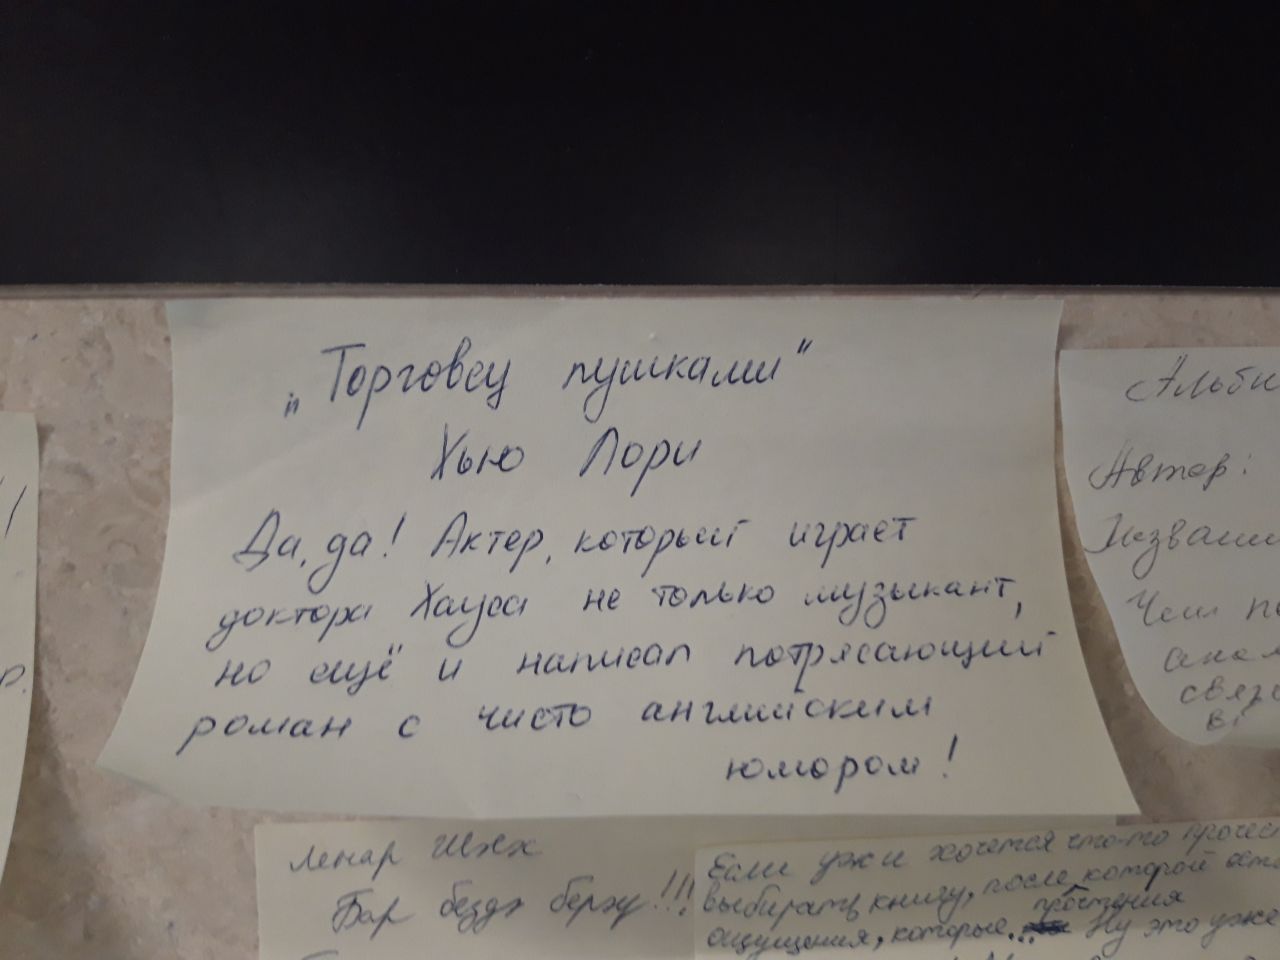 „Торговец пушками"
Хью Лори
Да, да! Актер, который играет
доктора Хауса не только музыкант,
но ещё и написал потрясающий
роман с чисто английским
юмором!
Альби
Автор:
Названи
Чем по
связ
Ленар Шәях
Бар бездә берәү!!!
Если уж и хочется что-то прочес
выбирать книгу, после которой ост
прочтения
ощущения, которые... Ну это уже